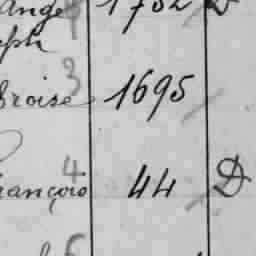 ange 1752 D
eph
3
broise 1695
4
rançois 44 D
6